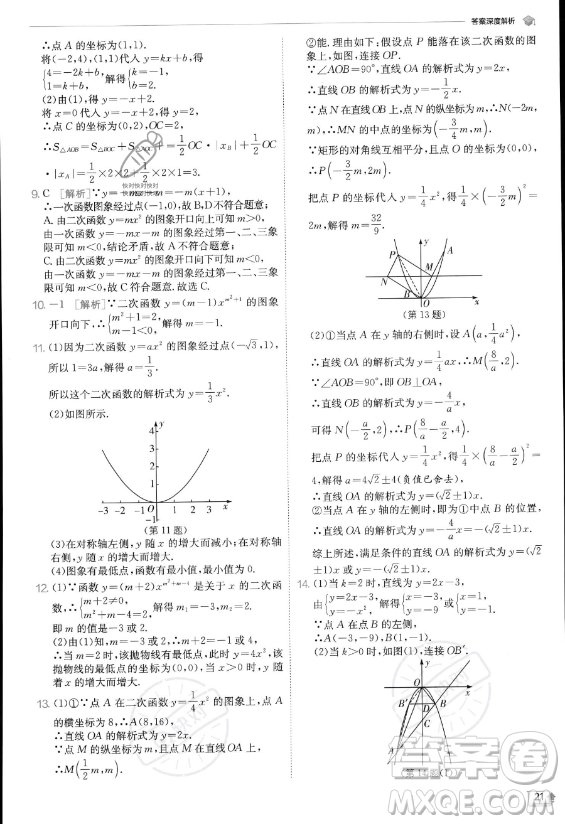 答案深度解析
∴点 A 的坐标为(1,1).
将(-2,4),(1,1)代入 y=kx+b,得
{4=-2k+b, 1=k+b, 解得{k=-1, b=2.
(2)由(1),得 y=-x+2.
将 x=0代入 y=-x+2,得 y=2,
∴点 C 的坐标为(0,2),OC=2,
∴S△AOB=S△AOC+S△BOC=1/2 OC·|xA|+1/2 OC
·|xB|=1/2×2×2+1/2×2×1=3.
9. C [解析]∵y=-mx-m=-m(x+1),
∴一次函数图象经过点(-1,0),故B,D不符合题意;
A. 由二次函数 y=mx² 的图象开口向上可知 m>0,
由一次函数 y=-mx-m 的图象经过第一、二、三象
限可知 m<0,结论矛盾,故A不符合题意;
C. 由二次函数 y=mx² 的图象开口向下可知 m<0,
由一次函数 y=-mx-m 的图象经过第一、二、三象
限可知 m<0,故C符合题意. 故选C.
10. -1 [解析]∵二次函数 y=(m-1)x^(m²+1) 的图象
开口向下,∴{m²+1=2, m-1<0, 解得 m=-1.
11. (1)因为二次函数 y=ax² 的图象经过点(-√3,1),
所以 1=3a,解得 a=1/3.
所以这个二次函数的解析式为 y=1/3 x².
(2)如图所示.
y
4
3
2
1
-3 -2 -1 O 1 2 3 x
-1
(第 11 题)
(3)在对称轴左侧,y 随 x 的增大而减小;在对称轴
右侧,y 随 x 的增大而增大.
(4)图象有最低点,最低点的坐标为(0,0).
12. (1)∵函数 y=(m+2)x^(m²+m-4) 是关于 x 的二次函
数,∴{m+2≠0, m²+m-4=2, 解得 m₁=2,m₂=-3.
即 m 的值是-3 或 2.
(2)由(1)知,m₁=2,m₂=-3.
∴当 m=2 时,该抛物线有最低点,此时 y=4x²,该
抛物线的最低点的坐标为(0,0),当 x>0 时,y 随
x 的增大而增大.
13. (1)①∵点 A 在二次函数 y=1/4 x² 的图象上,点 A
的横坐标为 8,∴A(8,16),
∴直线 OA 的解析式为 y=2x.
∵点 M 的纵坐标为 m,点 M 在直线 OA 上,
∴M(1/2 m,m).
②能. 理由如下:假设点 P 能落在该二次函数的图
象上,如图,连接 OP.
∵∠AOB=90°,直线 OA 的解析式为 y=2x,
∴直线 OB 的解析式为 y=-1/2 x.
∵点 N 在直线 OB 上,点 N 的纵坐标为 m,∴N(-2m,
m),∴MN 的中点的坐标为(-3/4 m,m).
∵矩形的对角线互相平分,且点 O 的坐标为(0,0),
∴P(-3/2 m,2m).
把点 P 的坐标代入 y=1/4 x²,得 1/4×(-3/2 m)²=
2m,解得 m=32/9.
y
A
P
N
M
B
O
x
(第 13 题)
(2)①当点 A 在 y 轴的右侧时,设 A(a,1/4 a²),
∴直线 OA 的解析式为 y=1/4 ax,∴M(8/a,2).
∵∠AOB=90°,即 OB⊥OA,
∴直线 OB 的解析式为 y=-4/a x.
可得 N(-a/2,2),∴P(8/a-a/2,4).
把点 P 的坐标代入 y=1/4 x²,得 1/4×(8/a-a/2)²=
4,解得 a=4√2±4(负值已舍去),
∴直线 OA 的解析式为 y=(√2±1)x.
②当点 A 在 y 轴的左侧时,即为①中点 B 的位置,
∴直线 OA 的解析式为 y=-4/a x=-(√2±1)x.
综上所述,满足条件的直线 OA 的解析式为 y=(√2
±1)x 或 y=-(√2±1)x.
14. (1)当 k=2 时,直线为 y=2x-3,
∵点 A 在点 B 的左侧,
∴A(-3,-9),B(1,-1).
(2)当 k>0 时,如图(1),连接 OB′.
y
O
x
B′
D
B
C
A
21
答案圈